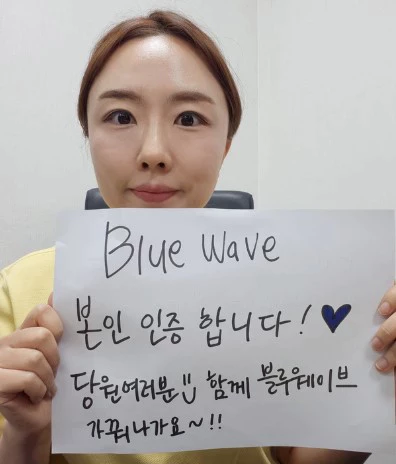 Blue Wave
본인 인증 합니다! ♥
당원여러분 함께 블루웨이브
가꿔나가요~!!